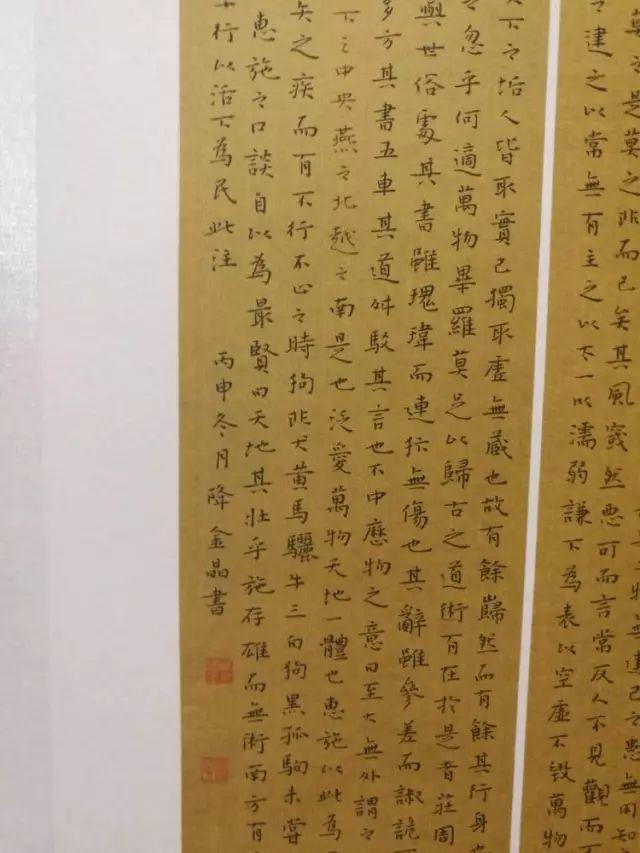 物無建己之患無用知之
莫之是莫之非而已矣其風窢然惡可而言常反人不見觀而不
之建之以常無有主之以太一以濡弱謙下為表以空虛不毀萬物
天下之垢人皆取實己獨取虛無藏也故有餘巋然而有餘其行身也
忽乎何適萬物畢羅莫足以歸古之道術有在於是者莊周
與世俗處其書雖瑰瑋而連犿無傷也其辭雖參差而諔詭
多方其書五車其道舛駁其言也不中歷物之意曰至大無外謂之
下之中央燕之北越之南是也泛愛萬物天地一體也惠施以此為
矢之疾而有不行不止之時狗非犬黃馬驪牛三白狗黑孤駒未嘗
惠施之口談自以為最賢曰天地其壯乎施存雄而無術南方有
行以活下為民此注 丙申冬月降金晶書